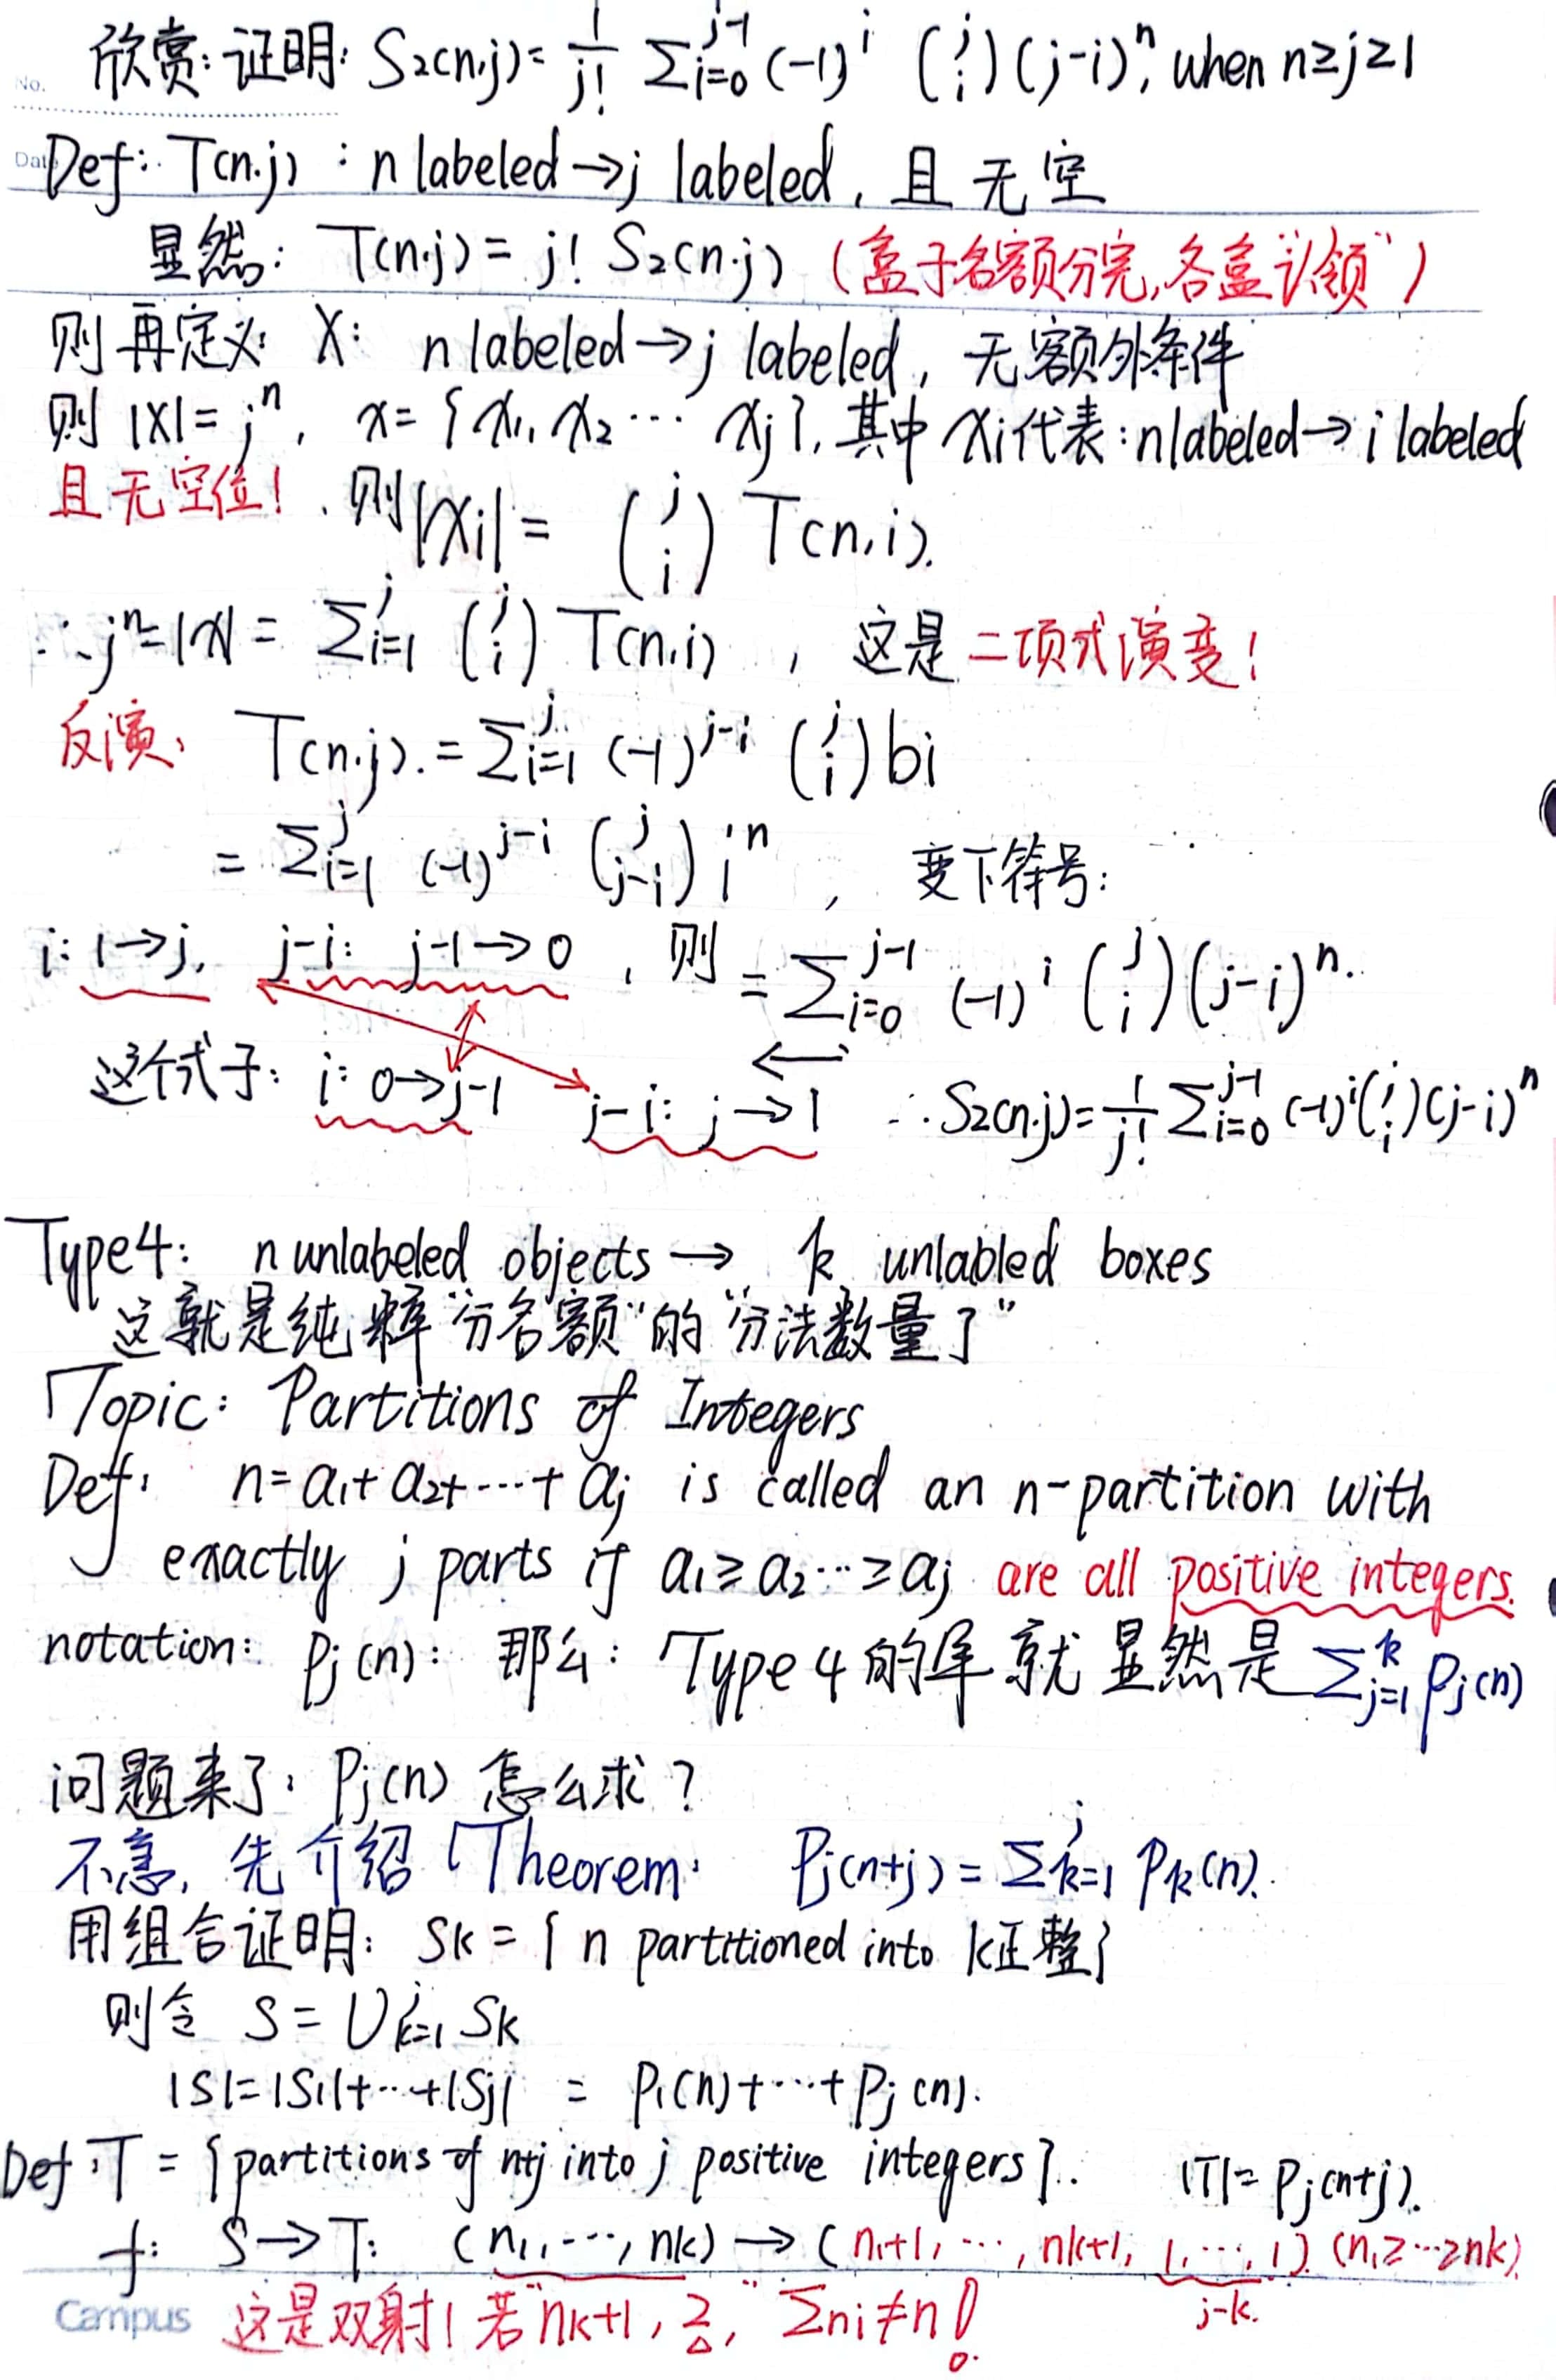 欣赏: 证明: S₂(n,j) = 1/j! Σ_{i=0}^{j-1} (-1)^i (j i) (j-i)^n, when n≥j≥1
No.
Date
Def: T(n,j) : n labeled → j labeled, 且无空
显然: T(n,j) = j! S₂(n,j) (盒子名额分完,各盒"认领")
则再定义: X: n labeled → j labeled, 无额外条件
则 |X| = j^n, x = {x₁, x₂ ⋯ xj}, 其中 xi代表: n labeled → i labeled
且无空位! , 则|xi| = (j i) T(n,i).
∴ j^n = |x| = Σ_{i=1}^{j} (j i) T(n,i) , 这是二项式演变!
反演: T(n,j). = Σ_{i=1}^{j} (-1)^{j-i} (j i) bi
= Σ_{i=1}^{j} (-1)^{j-i} (j j-i) i^n , 变下符号:
i: 1→j, j-i: j-1→0 , 则 = Σ_{i=0}^{j-1} (-1)^i (j i) (j-i)^n.
←
这个式子: i: 0→j-1 j-i: j→1 ∴ S₂(n,j) = 1/j! Σ_{i=0}^{j-1} (-1)^i (j i) (j-i)^n
Type4: n unlabeled objects → k unlabled boxes
这就是纯粹"分名额"的"分法数量了"
Topic: Partitions of Integers
Def: n = a₁ + a₂ + ⋯ + aj is called an n-partition with
exactly j parts if a₁ ≥ a₂ ⋯ ≥ aj are all positive integers.
notation: Pj(n): 那么: Type 4 的解就显然是 Σ_{j=1}^{k} Pj(n)
问题来了: Pj(n) 怎么求?
不急, 先介绍 Theorem: Pj(n+j) = Σ_{k=1}^{j} Pk(n).
用组合证明: Sk = { n partitioned into k正整}
则令 S = ∪_{k=1}^{j} Sk
|S| = |S₁| + ⋯ + |Sj| = P₁(n) + ⋯ + Pj(n).
Def: T = {partitions of n+j into j positive integers}. |T| = Pj(n+j).
f: S → T: (n₁, ⋯, nk) → (n₁+1, ⋯, nk+1, 1, ⋯, 1) (n₁ ≥ ⋯ ≥ nk)
j-k.
Campus 这是双射! 若"nk+1, 2," Σni ≠ n!